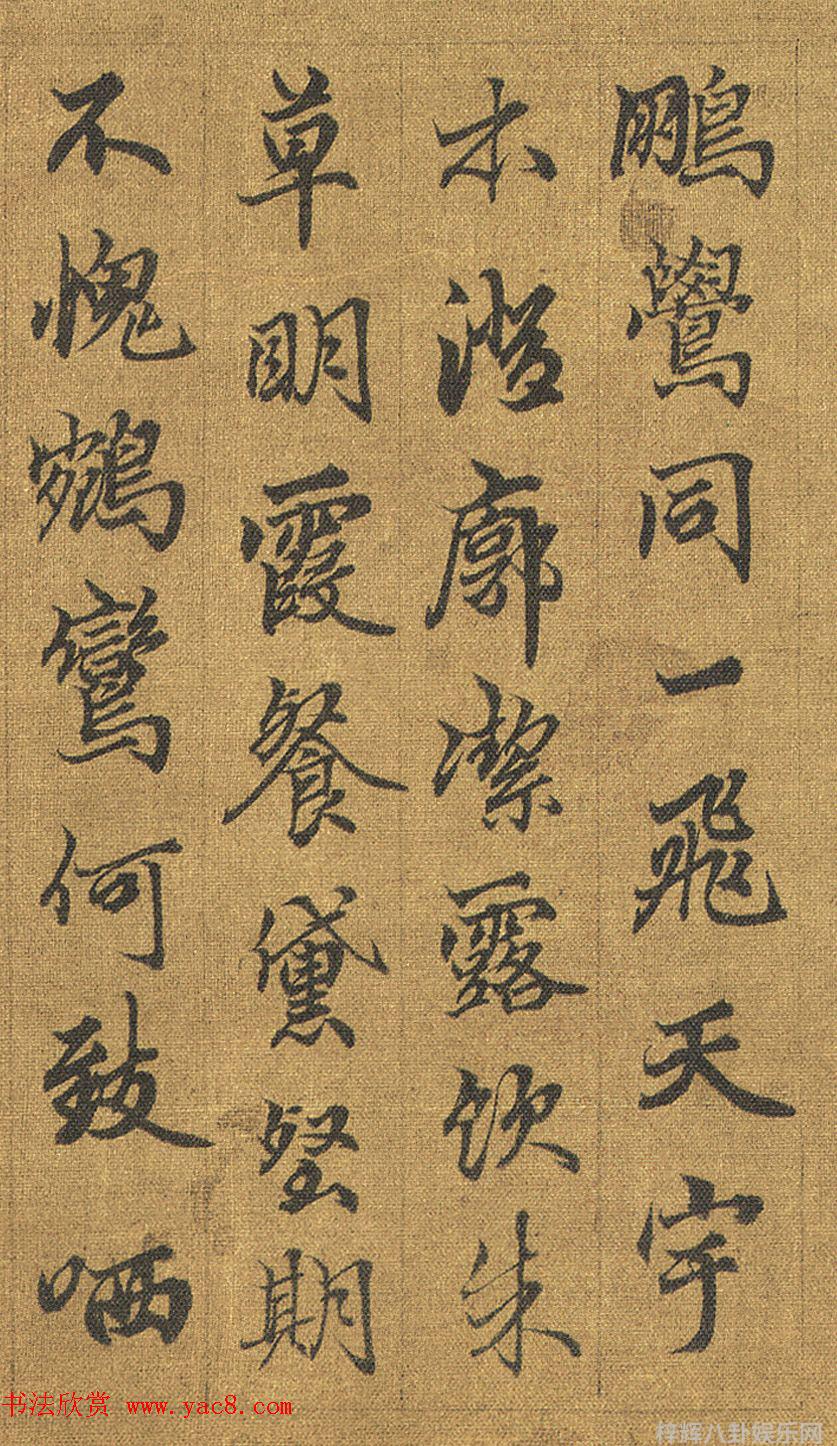 鵬鷽同一飛天宇
木澄廓潔露飲朱
草明霞餐黛壑期
不愧鶴鸞何致哂
书法欣赏 www.yac8.com
梓辉八卦娱乐网